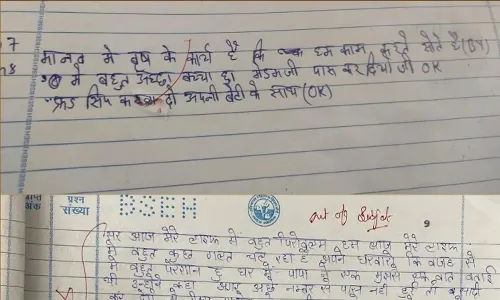 7
मानव मे वृष के कार्य है कि हम काम करते होते है (OK)
8 मे बहुत अच्छा बच्चा हु मैडमजी पास कर दियो जी OK
फ्रेंड सिप करवा दो अपनी बेटी के साथ (OK)
प्राप्त अंक
प्रश्न संख्या
BSEH
out of subject
9
सर आज मेरे लाइफ में बहुत परिवुलम है हम आज मेरे लाइफ
में बहुत कुछ गलत चल रहा है अपने घरवालो कि वजह से
मैं बहुत परेशान हु घर में पापा ने एक मुझसे एक बात बताई
थी उन्होंने कहा अगर अच्छे नम्बर से पास नही हुई तो